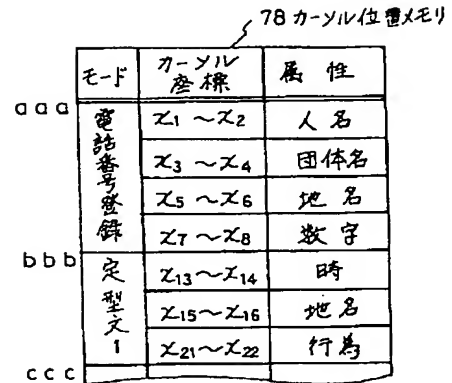 78 カーソル位置メモリ
モード カーソル座標 属性
aaa
電話番号登録
x1 〜 x2 人名
x3 〜 x4 団体名
x5 〜 x6 地名
x7 〜 x8 数字
bbb
定型文1
x13〜x14 時
x15〜x16 地名
x21〜x22 行為
ccc